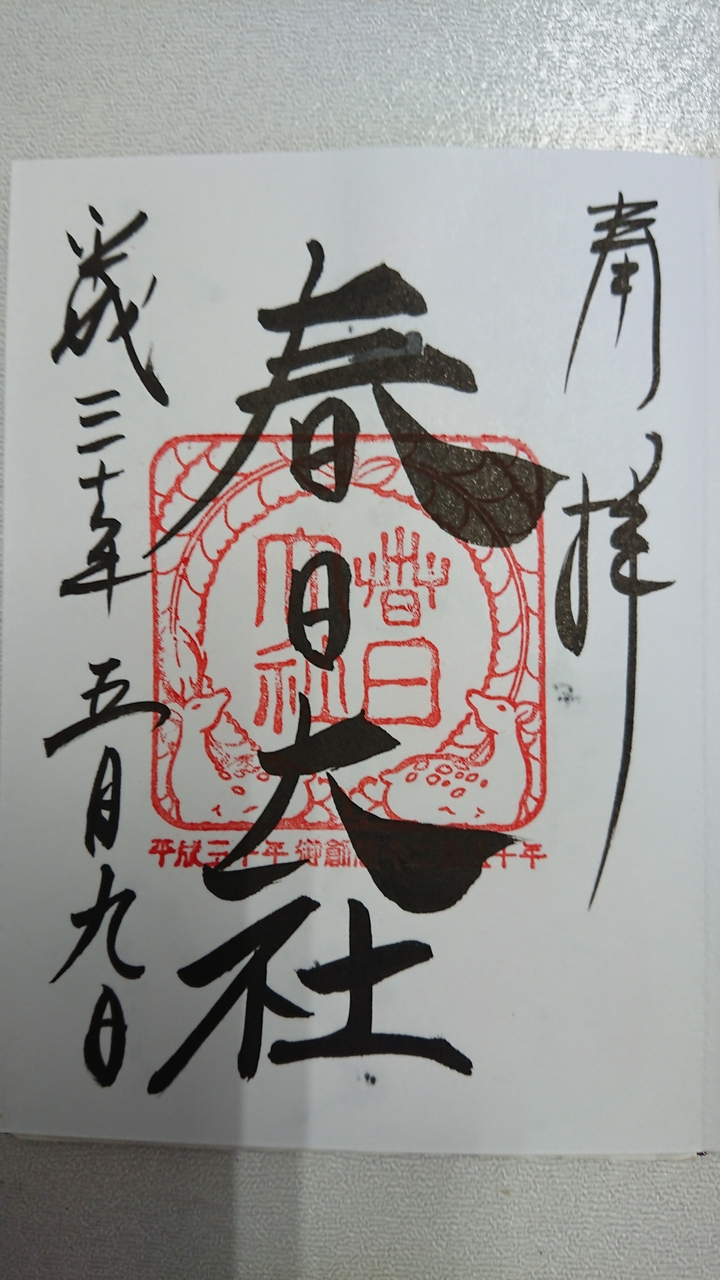 奉拝
春日大社
平成三十年五月九日
春日
大社
平成三十年 御創 十年